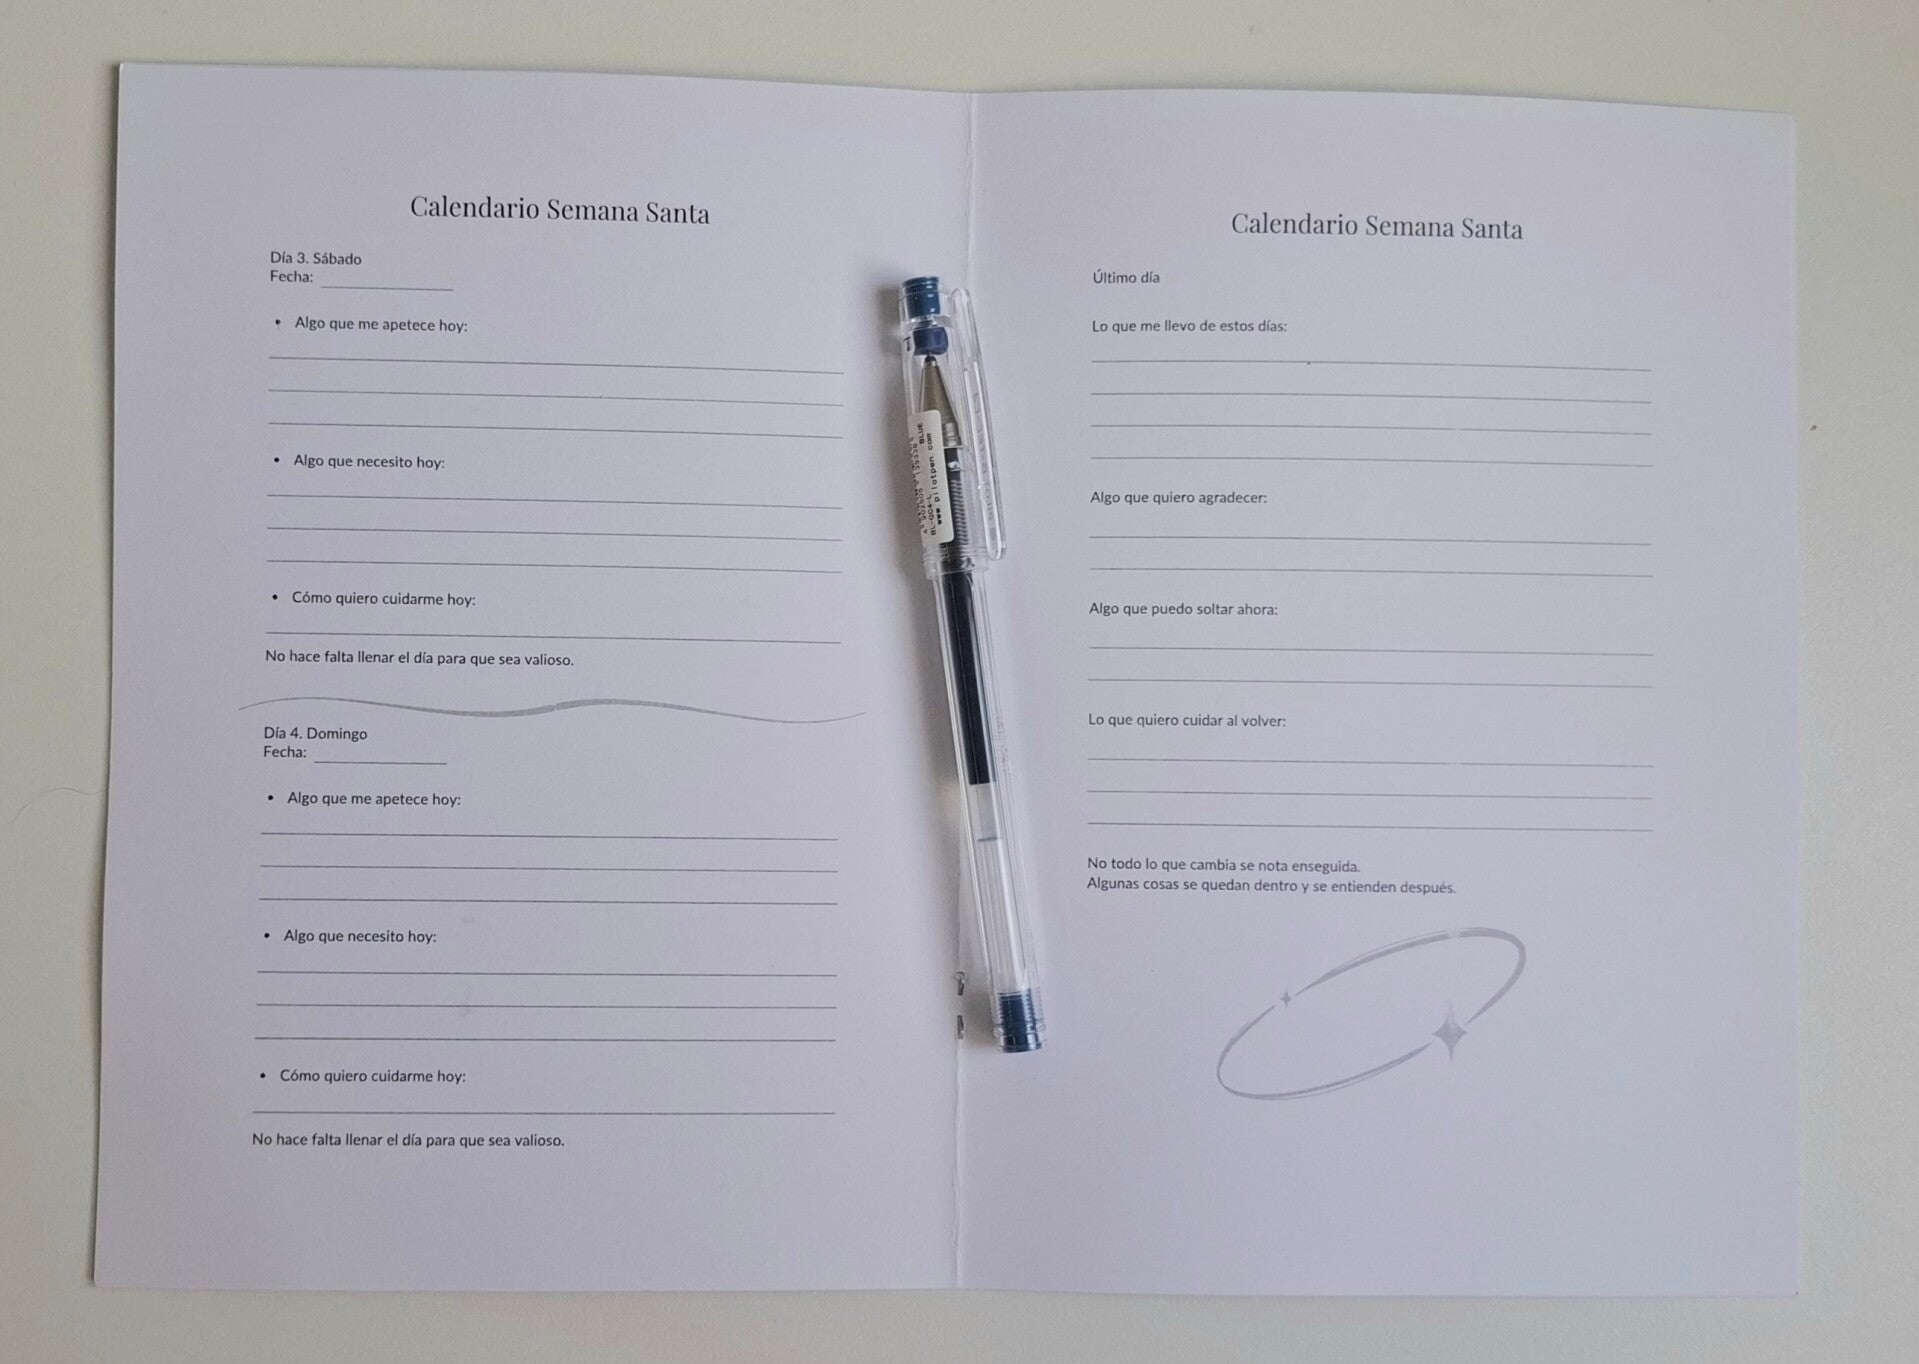 Calendario Semana Santa
Día 3. Sábado
Fecha:
Algo que me apetece hoy:
Algo que necesito hoy:
Cómo quiero cuidarme hoy:
No hace falta llenar el día para que sea valioso.
Día 4. Domingo
Fecha:
Algo que me apetece hoy:
Algo que necesito hoy:
Cómo quiero cuidarme hoy:
No hace falta llenar el día para que sea valioso.
BLUE
BL-GC4-L
www.pilotpen.com
Calendario Semana Santa
Último día
Lo que me llevo de estos días:
Algo que quiero agradecer:
Algo que puedo soltar ahora:
Lo que quiero cuidar al volver:
No todo lo que cambia se nota enseguida.
Algunas cosas se quedan dentro y se entienden después.